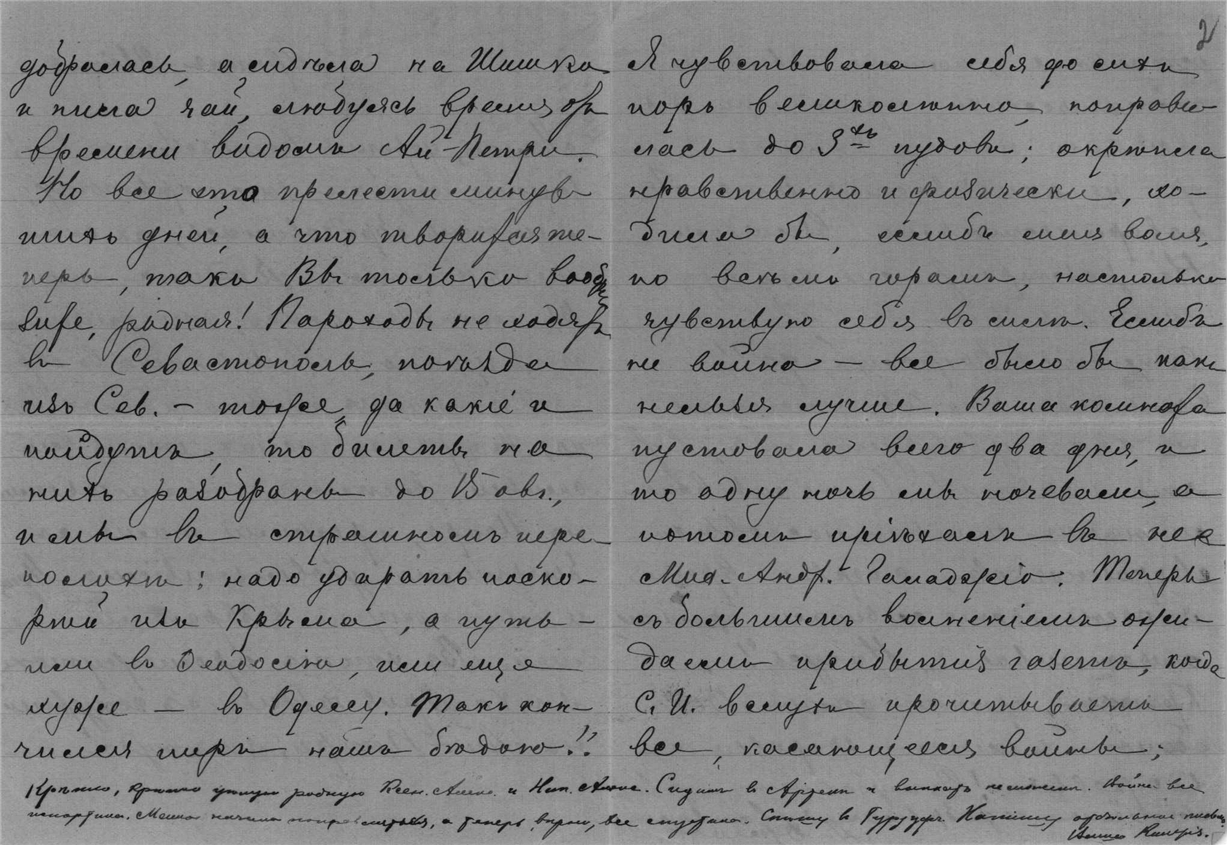 добралась, а сидѣла на Шишкѣ
и пила чай, любуясь время отъ
времени видомъ Ай-Петри.
Но все это прелести минув-
шихъ дней, а что творится те-
перь, такъ Вы только вообра-
зите, родная! Пароходы не ходятъ
въ Севастополь, поѣзда
изъ Сев. – тоже, да какіе и
пойдутъ, то билеты на
нихъ разобраны до 15 авг.,
и мы въ страшномъ пере-
полохѣ: надо удирать поско-
рѣй изъ Крыма, а путь –
или въ Ѳеодосію, или еще
хуже – въ Одессу. Такъ кон-
чился пиръ нашъ бѣдою!!
2
Я чувствовала себя до сихъ
поръ великолѣпно, поправи-
лась до 3хъ пудовъ; окрѣпла
нравственно и физически, хо-
дила бы, еслибъ моя воля,
по всѣмъ горамъ, настолько
чувствую себя въ силѣ. Еслибъ
не война – все было бы какъ
нельзя лучше. Ваша комната
пустовала всего два дня, и
то одну ночь мы ночевали, а
потомъ пріѣхалъ въ нее
Мих. Андр. Галаджіо. Теперь
съ большимъ волненіемъ ожи-
даемъ прибытія газетъ, когда
С. И. вслухъ прочитываетъ
все, касающееся войны;
Крѣпко, крѣпко цѣлую родную Ксен. Алекс. и Ник. Алекс. Сидимъ въ Артекѣ и выѣхать не можемъ. Война все
испортила. начала поправляться, а теперь, вѣрно, все спустила. въ Гурзуфъ отдѣльное письмо.